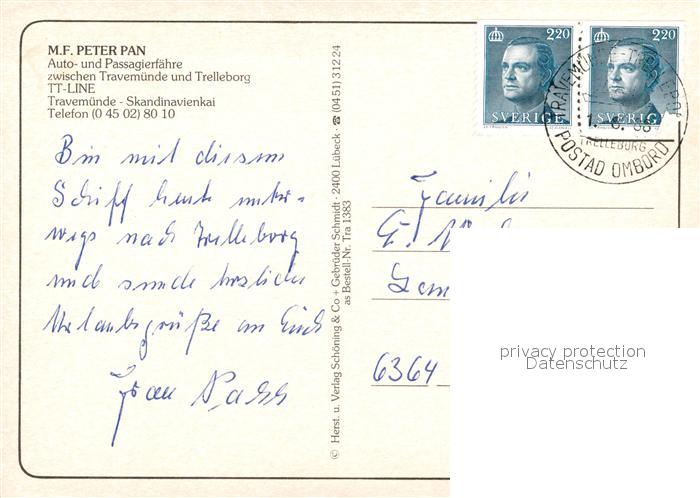 M.F. PETER PAN
Auto- und Passagierfähre
zwischen Travemünde und Trelleborg
TT-LINE
Travemünde - Skandinavienkai
Telefon (0 45 02) 80 10
Bin mit diesem
Schiff heute unter-
wegs nach Trelleborg
und sende herzliche
Urlaubsgrüße an Euch
Frau
© Herst. u. Verlag Schöning & Co + Gebrüder Schmidt · 2400 Lübeck · ☎ (04 51) 3 12 24
as Bestell-Nr. Tra 1383
2.20
SVERIGE
2.20
SVERIGE
TRAVEMÜNDE-TRELLEBORG
TRELLEBORG
POSTAD OMBORD
Familie
G.
6364
privacy protection
Datenschutz